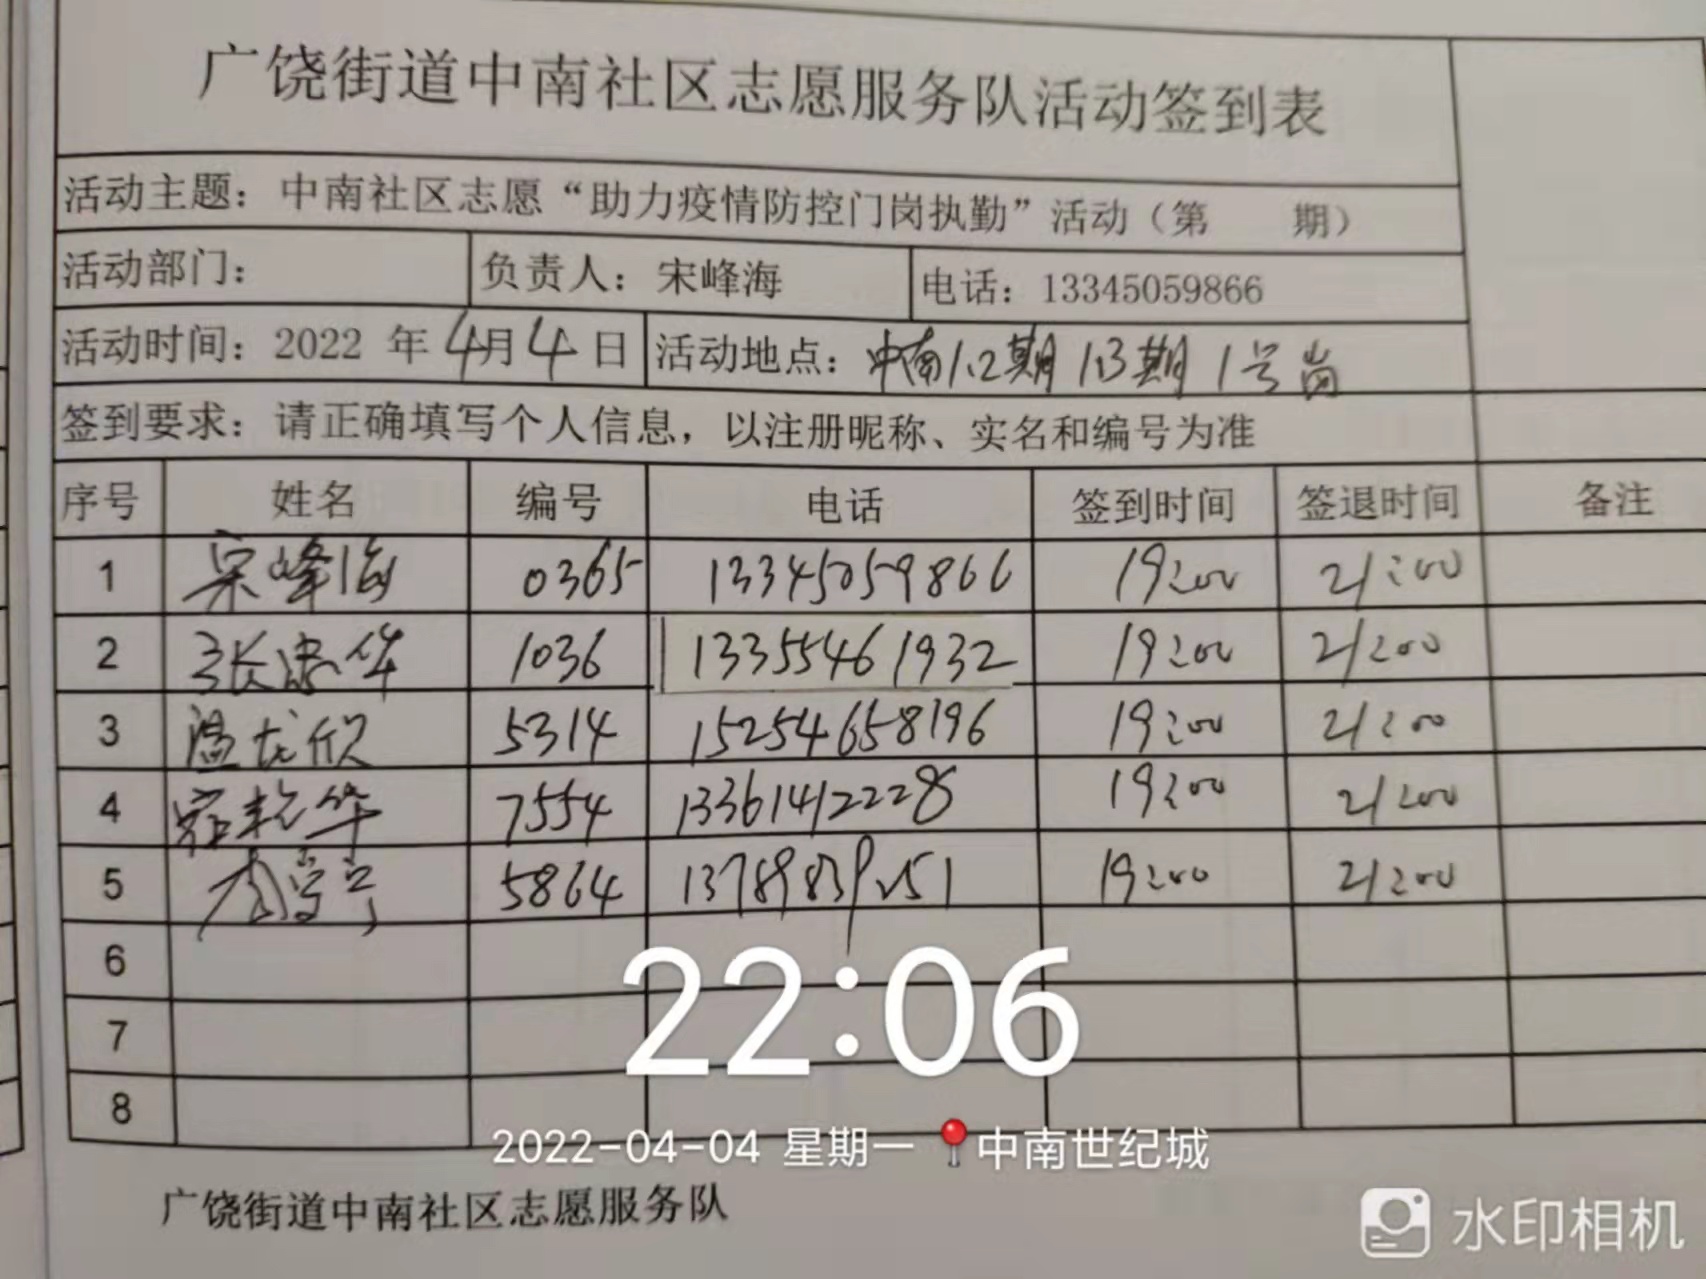 广饶街道中南社区志愿服务队活动签到表
活动主题：中南社区志愿“助力疫情防控门岗执勤”活动（第 期）
活动部门： 负责人：宋峰海 电话：13345059866
活动时间：2022 年 4月 4 日 活动地点：中南1.2期 1.3期 1号岗
签到要求：请正确填写个人信息，以注册昵称、实名和编号为准
序号 姓名 编号 电话 签到时间 签退时间 备注
1 宋峰海 0365 13345059866 19:00 21:00
2 张忠华 1036 13355461932 19:00 21:00
3 温龙欣 5314 15254658196 19:00 21:00
4 华 7554 13361412228 19:00 21:00
5 5864 19:00 21:00
6
7
8
22:06
2022-04-04 星期一 中南世纪城
广饶街道中南社区志愿服务队
水印相机